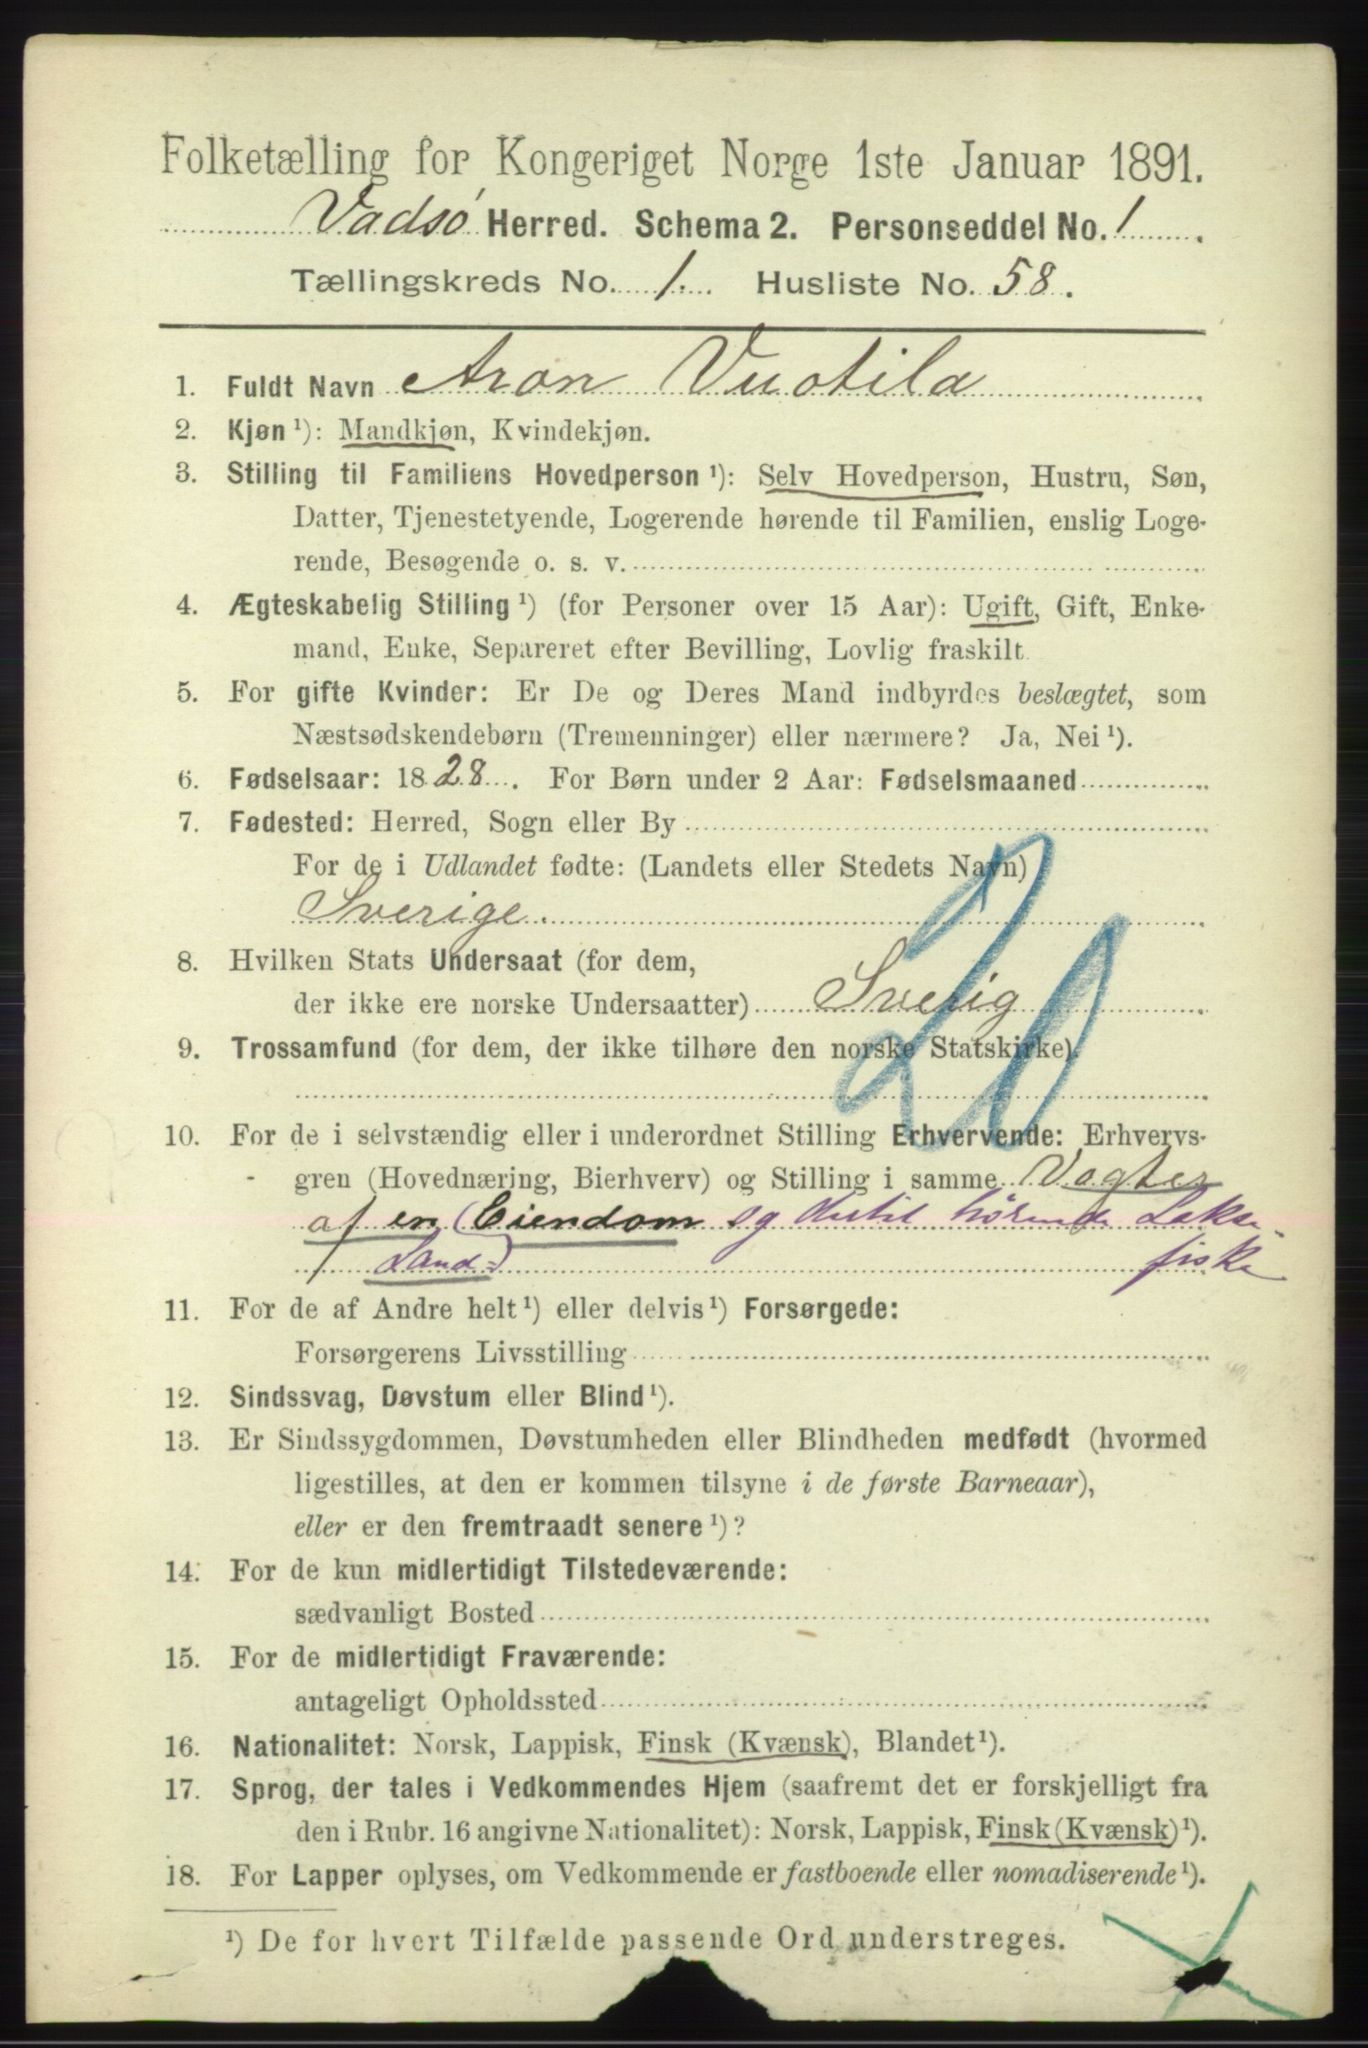 Folketælling for Kongeriget Norge 1ste Januar 1891.
Vadsø Herred. Schema 2. Personseddel No. 1.
Tællingskreds No. 1. Husliste No. 58.
1. Fuldt Navn Aron Vuotila
2. Kjøn ¹): Mandkjøn, Kvindekjøn.
3. Stilling til Familiens Hovedperson ¹): Selv Hovedperson, Hustru, Søn,
Datter, Tjenestetyende, Logerende hørende til Familien, enslig Loge-
rende, Besøgende o. s. v.
4. Ægteskabelig Stilling ¹) (for Personer over 15 Aar): Ugift, Gift, Enke-
mand, Enke, Separeret efter Bevilling, Lovlig fraskilt.
5. For gifte Kvinder: Er De og Deres Mand indbyrdes beslægtet, som
Næstsødskendebørn (Tremenninger) eller nærmere? Ja, Nei ¹).
6. Fødselsaar: 1828. For Børn under 2 Aar: Fødselsmaaned
7. Fødested: Herred, Sogn eller By
For de i Udlandet fødte: (Landets eller Stedets Navn)
Sverige.
20
8. Hvilken Stats Undersaat (for dem,
der ikke ere norske Undersaatter) Sverig
9. Trossamfund (for dem, der ikke tilhøre den norske Statskirke)
10. For de i selvstændig eller i underordnet Stilling Erhvervende: Erhvervs-
gren (Hovednæring, Bierhverv) og Stilling i samme Vogter
af en (Eiendom og dertil hørende Lakse-
Land=) fiske
11. For de af Andre helt ¹) eller delvis ¹) Forsørgede:
Forsørgerens Livsstilling
12. Sindssvag, Døvstum eller Blind ¹).
13. Er Sindssygdommen, Døvstumheden eller Blindheden medfødt (hvormed
ligestilles, at den er kommen tilsyne i de første Barneaar),
eller er den fremtraadt senere ¹)?
14. For de kun midlertidigt Tilstedeværende:
sædvanligt Bosted
15. For de midlertidigt Fraværende:
antageligt Opholdssted
16. Nationalitet: Norsk, Lappisk, Finsk (Kvænsk), Blandet ¹).
17. Sprog, der tales i Vedkommendes Hjem (saafremt det er forskjelligt fra
den i Rubr. 16 angivne Nationalitet): Norsk, Lappisk, Finsk (Kvænsk) ¹).
18. For Lapper oplyses, om Vedkommende er fastboende eller nomadiserende ¹).
¹) De for hvert Tilfælde passende Ord understreges.